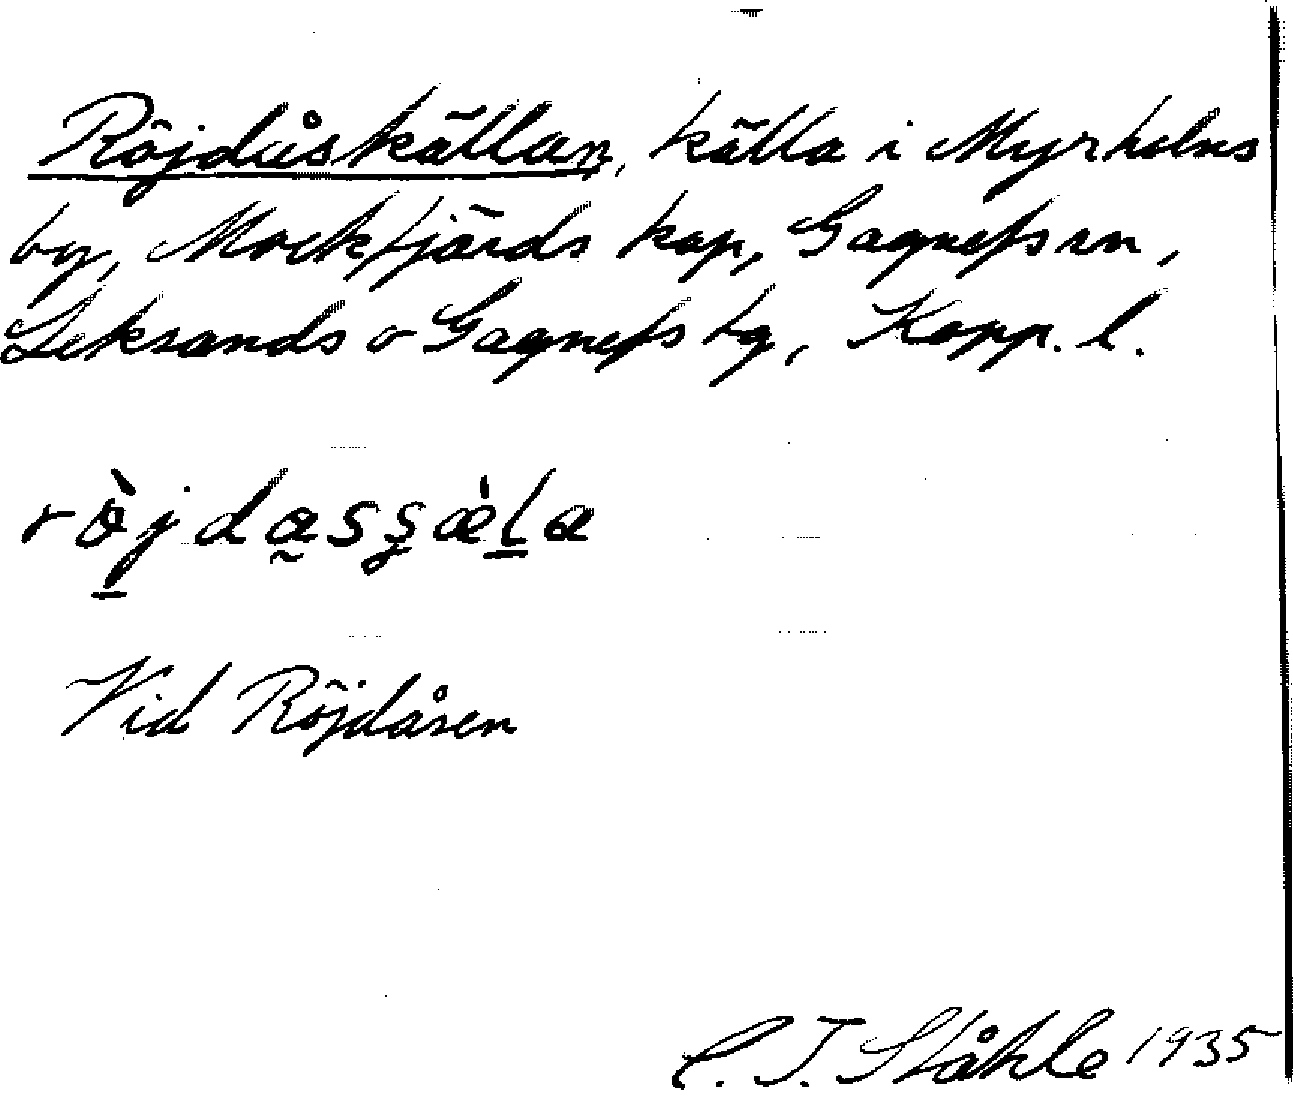 Röjdåskällan, källa i Myrholns
by, Mockfjärds kap, Gagnefs sn,
Leksands o Gagnefs tg, Kopp. l.
rö̀jdas̃ʂæ̀la
Vid Röjdåsen
C. I. Ståhle 1935